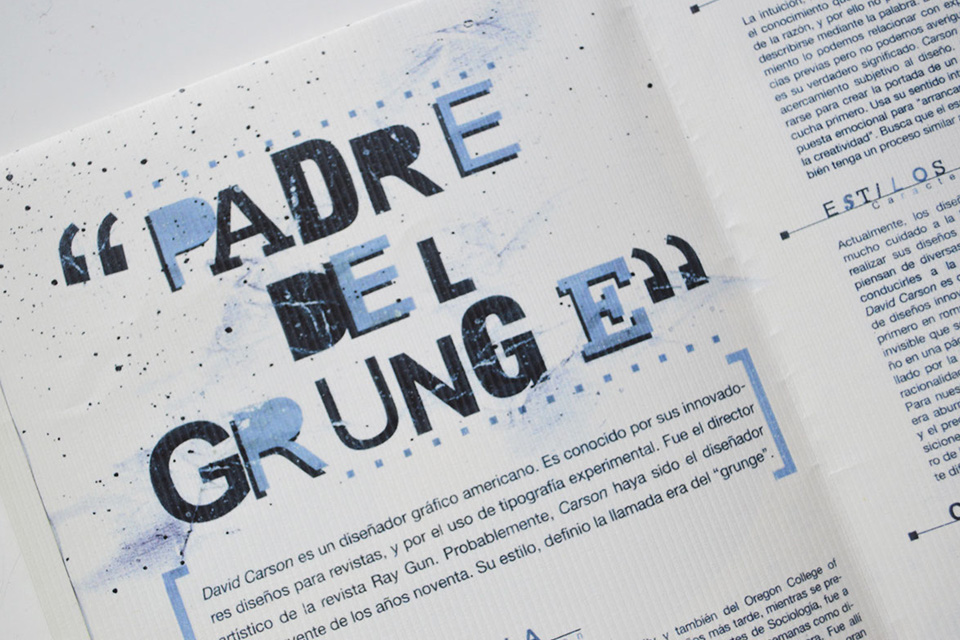 “PADRE
DEL
GRUNGE”
David Carson es un diseñador gráfico americano. Es conocido por sus innovado-
res diseños para revistas, y por el uso de tipografía experimental. Fue el director
artístico de la revista Ray Gun. Probablemente, Carson haya sido el diseñador
de los años noventa. Su estilo, definio la llamada era del “grunge”.
y también del Oregon College of
más tarde, mientras se pre-
de Sociología, fue a
como di-
Fue allí
La intuición,
el conocimiento que
de la razón, y por ello no
describirse mediante la palabra.
miento lo podemos relacionar con
cias previas pero no podemos
es su verdadero significado. Carson
acercamiento subjetivo al diseño.
rarse para crear la portada de un
cucha primero. Usa su sentido
puesta emocional para “arrancar
la creatividad”. Busca que el
bién tenga un proceso similar
ESTILOS
Actualmente, los
mucho cuidado a la
realizar sus diseños
piensan de diversas
conducirles a la
David Carson es
de diseños
primero en
invisible que
ño en una
llado por la
racionalidad
Para
era
y el
ro de
te